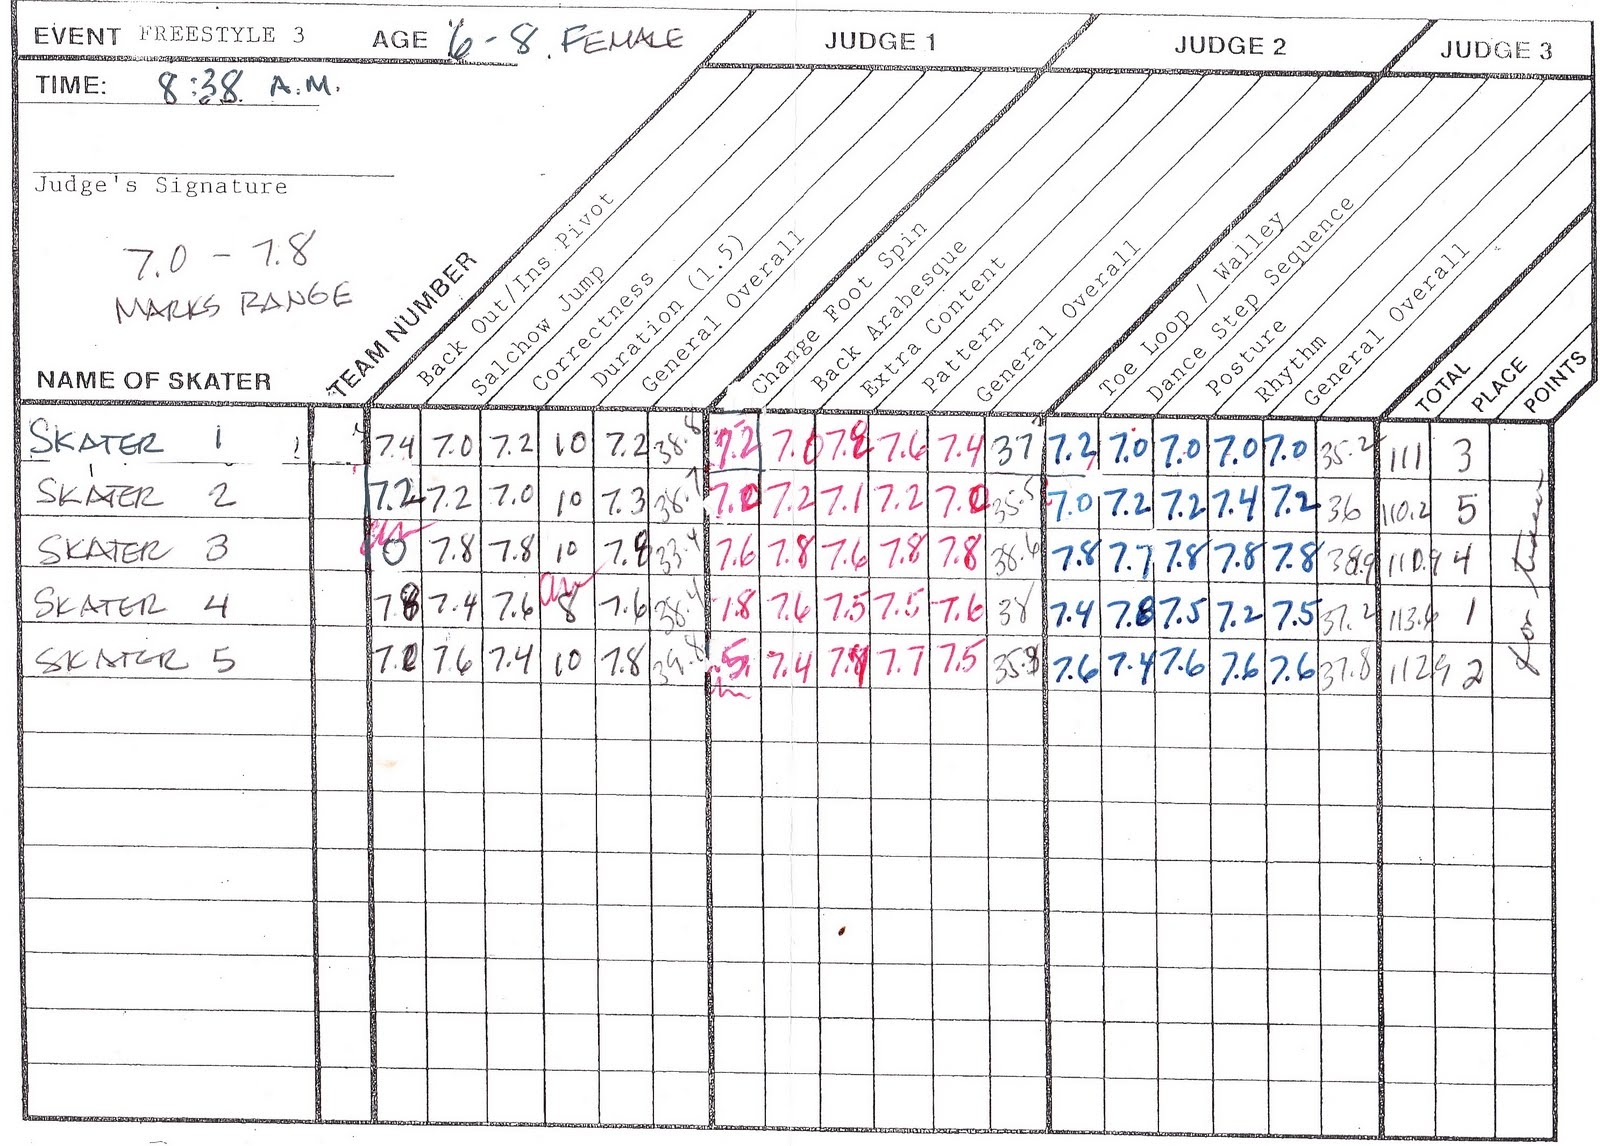 EVENT FREESTYLE 3 AGE 6-8 FEMALE JUDGE 1 JUDGE 2 JUDGE 3
TIME: 8:38 A.M.
Judge's Signature
7.0 - 7.8
MARKS RANGE
NAME OF SKATER
TEAM NUMBER
Back Out/Ins Pivot
Salchow Jump
Correctness
Duration (1.5)
General Overall
Change Foot Spin
Back Arabesque
Extra Content
Pattern
General Overall
Toe Loop / Walley
Dance Step Sequence
Posture
Rhythm
General Overall
TOTAL
PLACE
POINTS
SKATER 1 7.4 7.0 7.2 10 7.2 38.8 7.2 7.0 7.8 7.6 7.4 37 7.2 7.0 7.0 7.0 7.0 35.2 111 3
SKATER 2 7.2 7.2 7.0 10 7.3 38.7 7.0 7.2 7.1 7.2 7.0 35.5 7.0 7.2 7.2 7.4 7.2 36 110.2 5
SKATER 3 0 7.8 7.8 10 7.8 33.4 7.6 7.8 7.6 7.8 7.8 38.6 7.8 7.7 7.8 7.8 7.8 38.9 110.9 4
SKATER 4 7.8 7.4 7.6 8 7.6 38.4 7.8 7.6 7.5 7.5 7.6 38 7.4 7.8 7.5 7.2 7.5 37.2 113.6 1
SKATER 5 7.0 7.6 7.4 10 7.8 39.8 5. 7.4 7.8 7.7 7.5 35.3 7.6 7.4 7.6 7.6 7.6 37.8 112.9 2